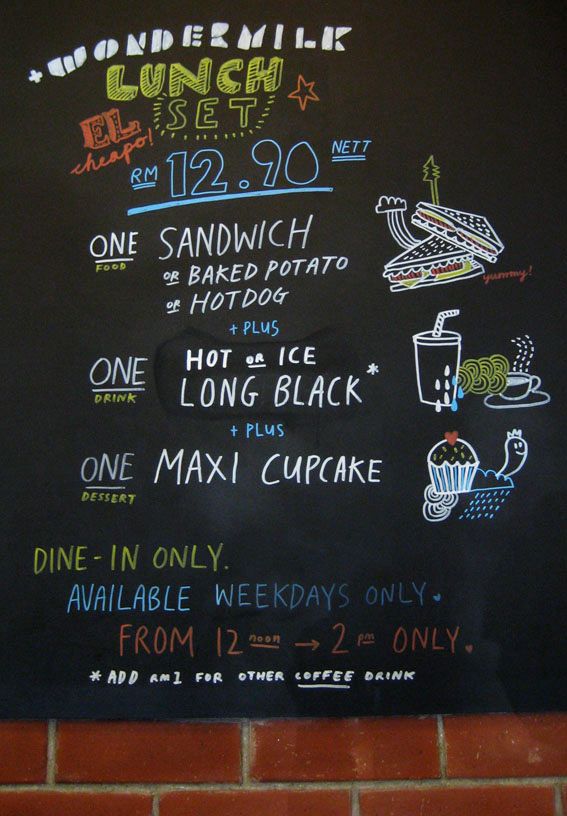 +WONDERMILK
LUNCH
SET
EL
cheapo!
RM 12.90 NETT
ONE SANDWICH
FOOD
OR BAKED POTATO
OR HOTDOG
yummy!
+ PLUS
HOT OR ICE
ONE LONG BLACK*
DRINK
+ PLUS
ONE MAXI CUPCAKE
DESSERT
DINE-IN ONLY.
AVAILABLE WEEKDAYS ONLY.
FROM 12 noon → 2 pm ONLY.
* ADD RM1 FOR OTHER COFFEE DRINK